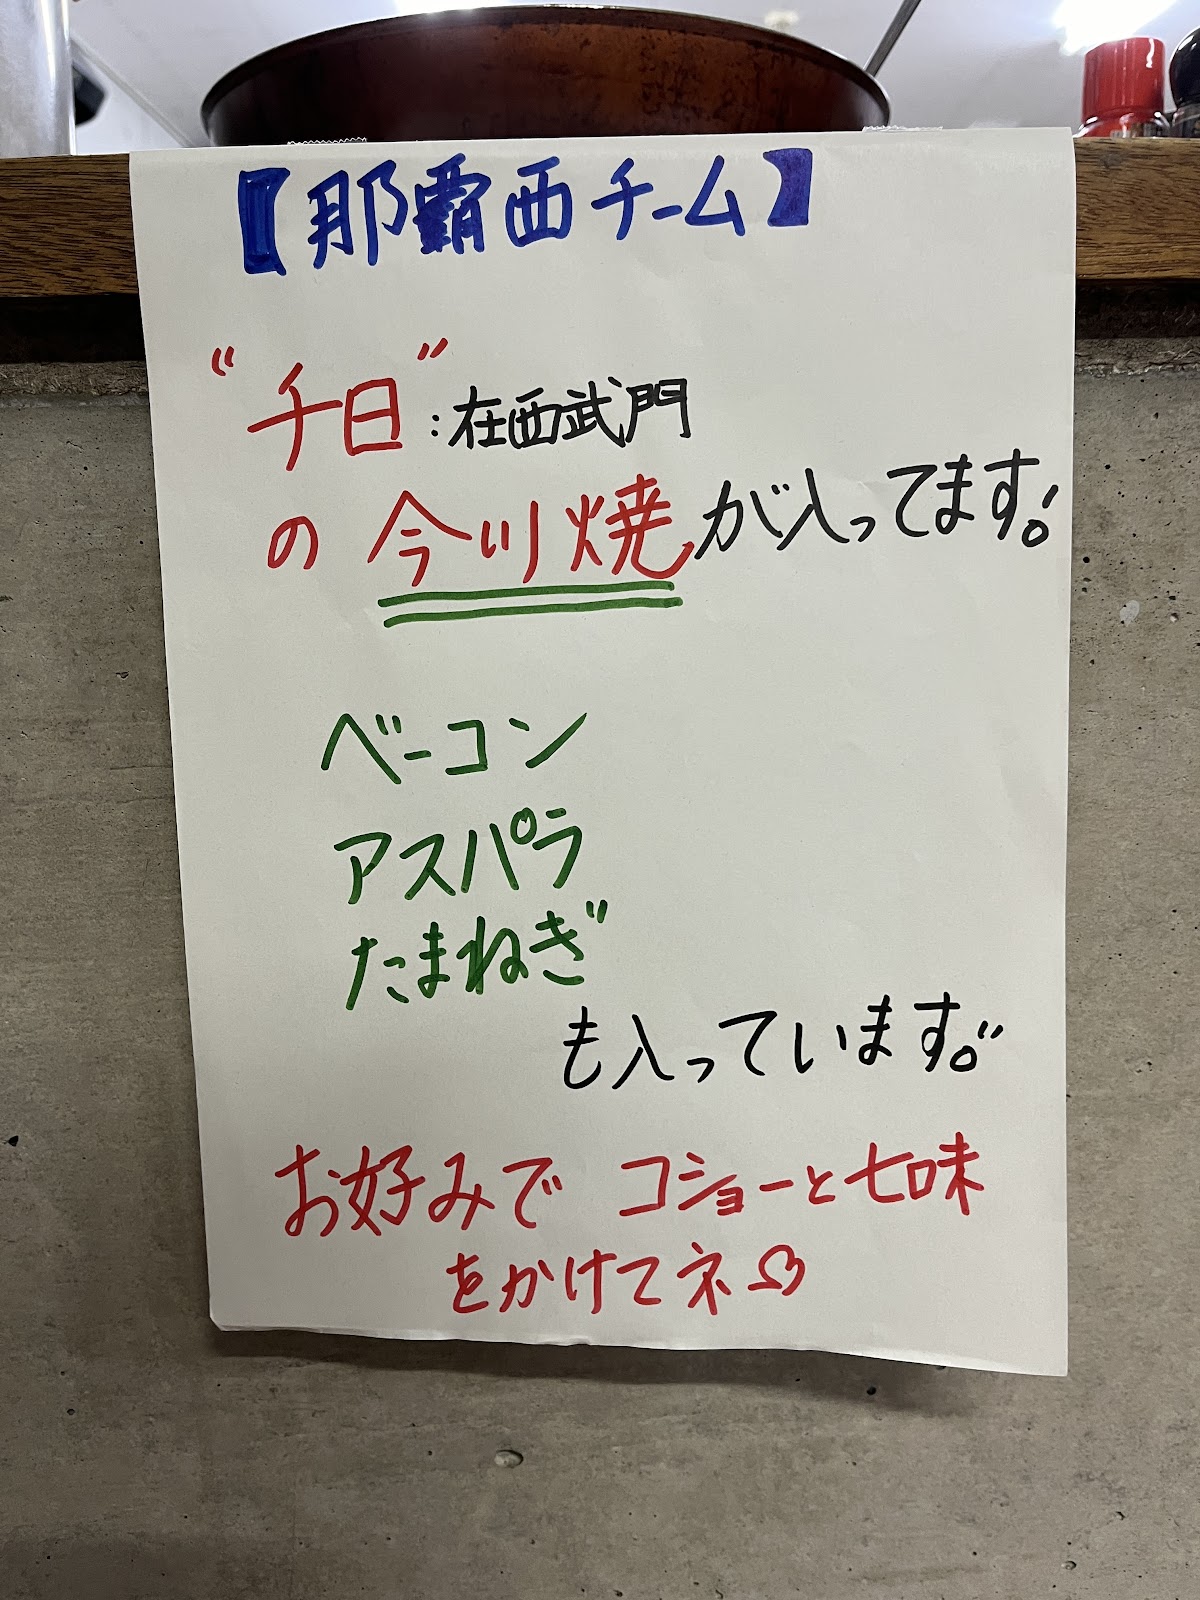 【那覇西チーム】
"千日":在西武門
の今川焼が入ってます!
ベーコン
アスパラ
たまねぎ
も入っています。
お好みで コショーと七味
をかけてネ